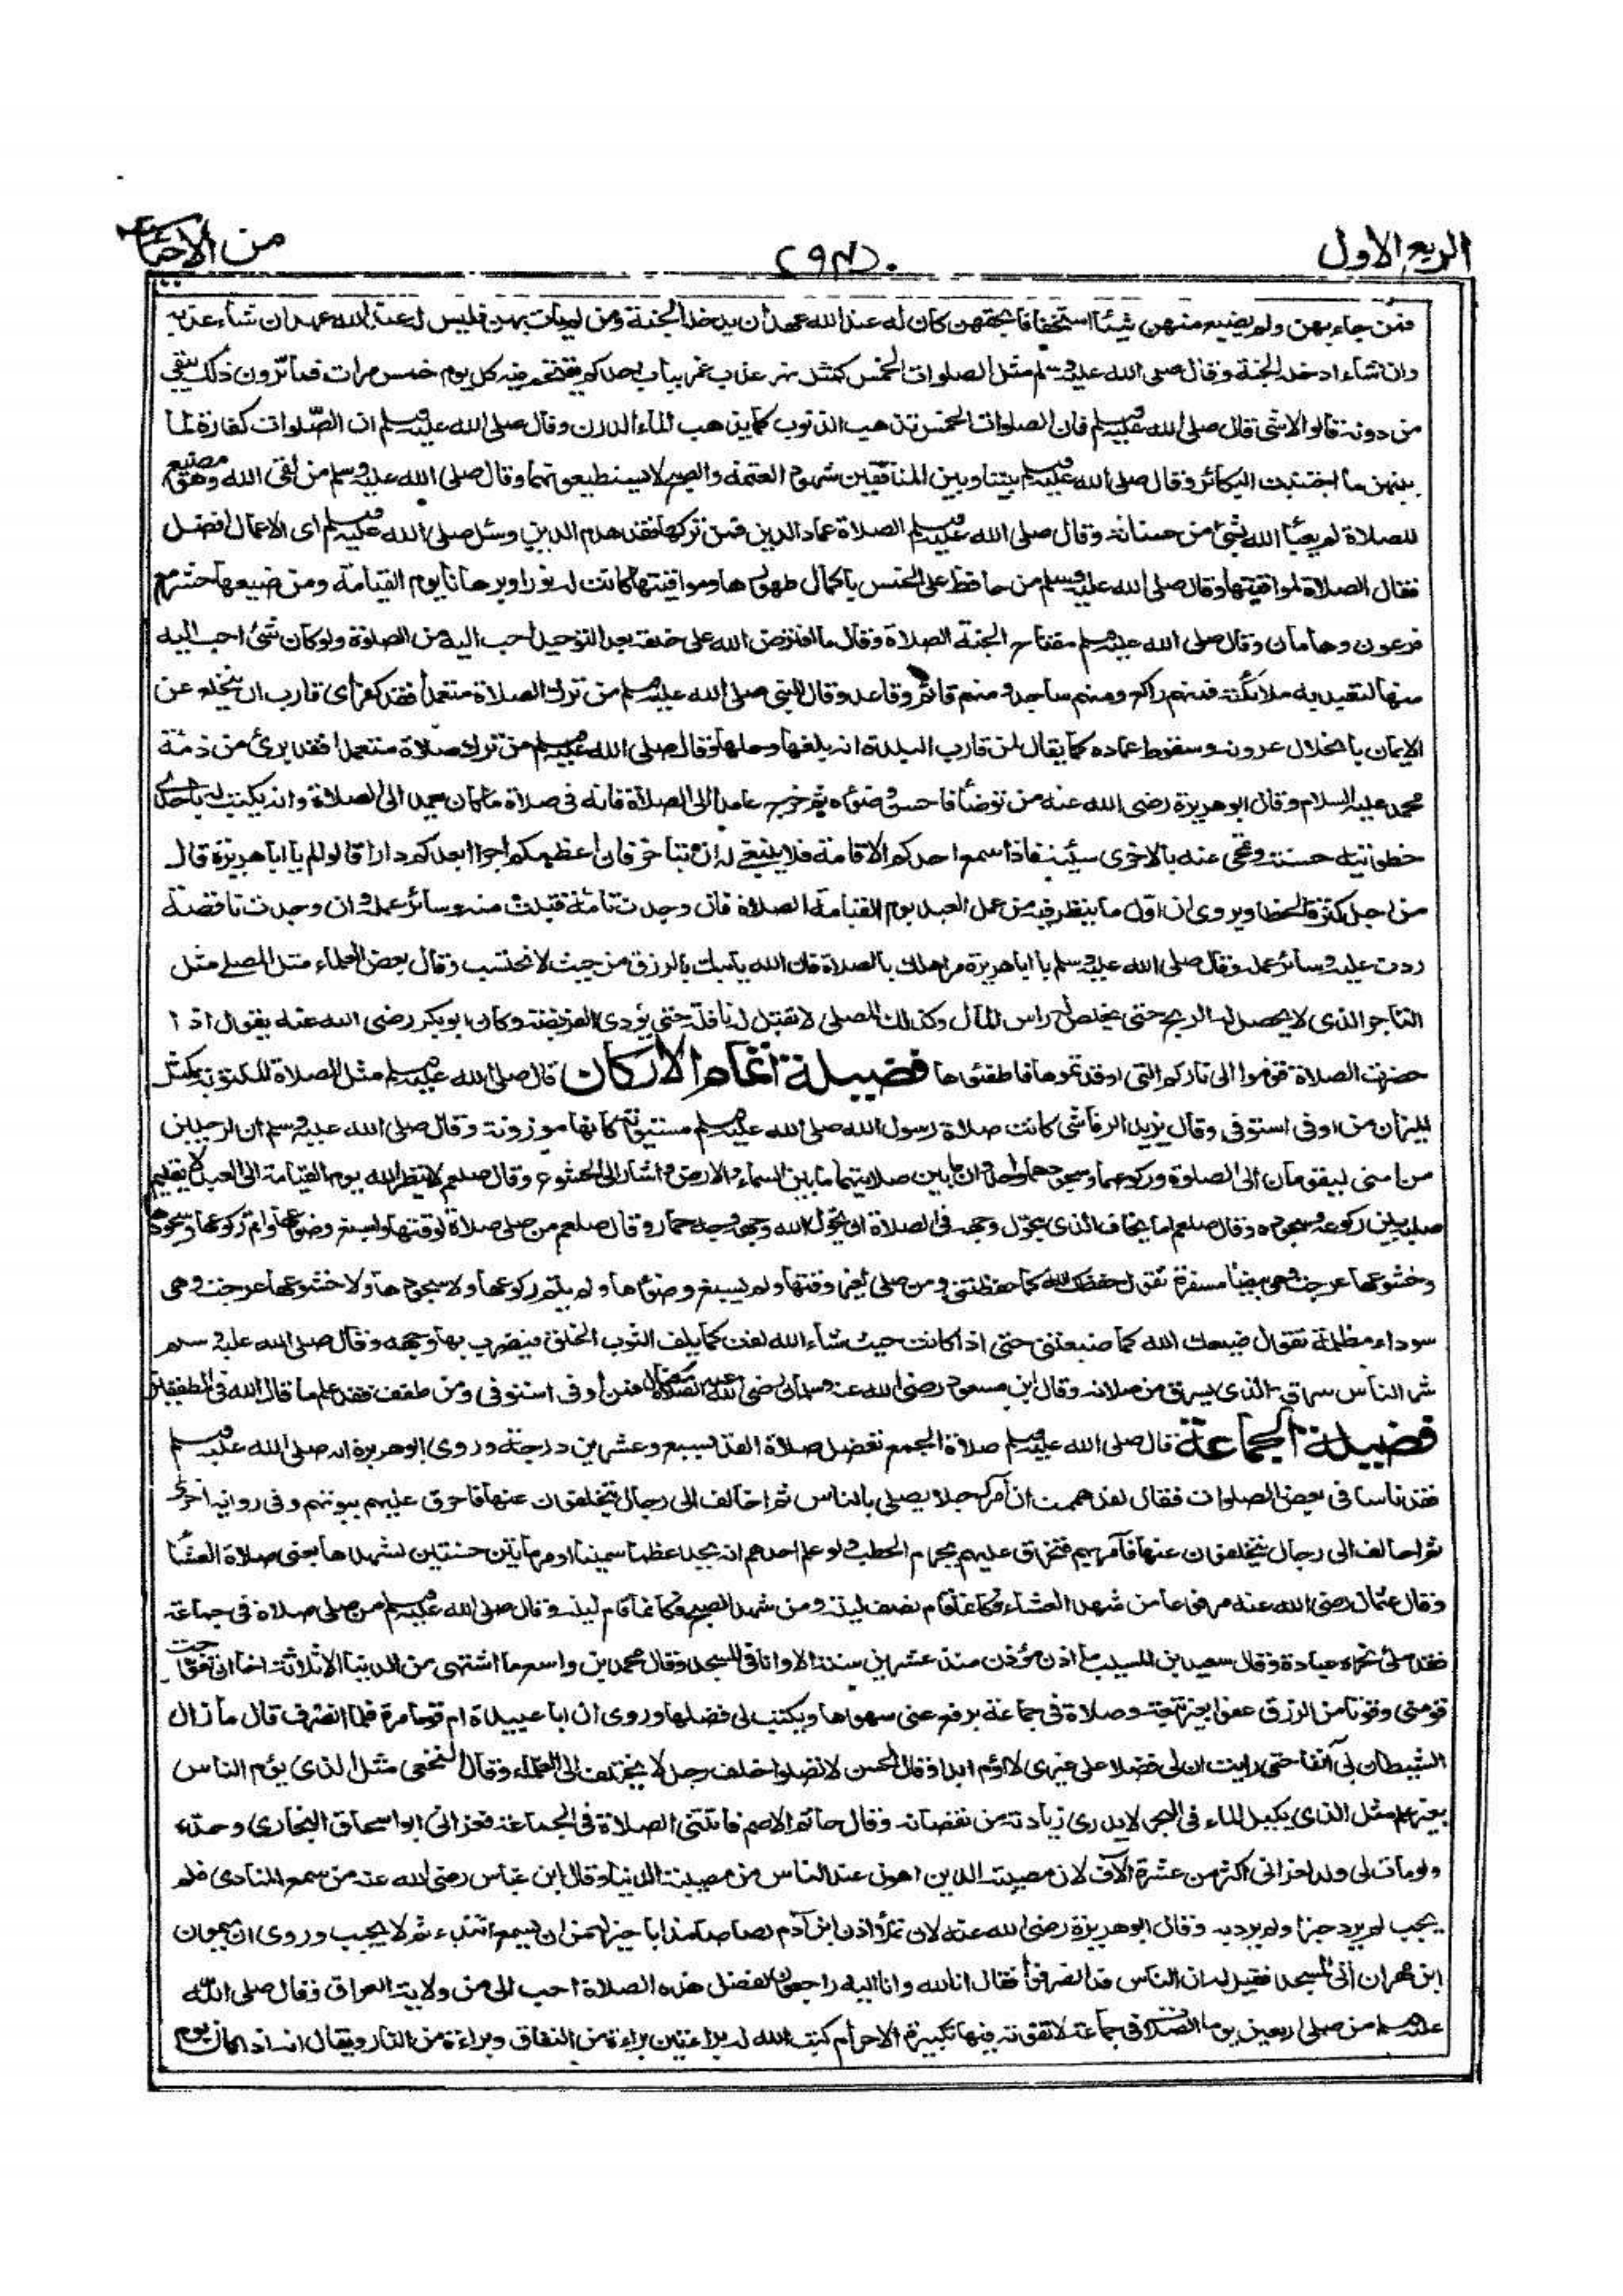 الربع الاول
(٩٤)
من الاحياء
فمن جاء بهن ولم يضيع منهن شيئا استخفافا بحقهن كان له عند الله عهد أن يدخله الجنة ومن لم يأت بهن فليس له عند الله عهد ان شاء عذبه
وان شاء ادخله الجنة وقال صلى الله عليه وسلم مثل الصلوات الخمس كمثل نهر عذب غمر بباب احدكم يقتحم فيه كل يوم خمس مرات فما ترون ذلك يبقى
من درنه قالوا لا شئ قال صلى الله عليه وسلم فان الصلوات الخمس تذهب الذنوب كما يذهب الماء الدرن وقال صلى الله عليه وسلم ان الصلوات كفارة لما
بينهن ما اجتنبت الكبائر وقال صلى الله عليه وسلم بيننا وبين المنافقين شهود العتمة والصبح لا يستطيعونهما وقال صلى الله عليه وسلم من لقى الله وهو مضيع
للصلاة لم يعبأ الله بشئ من حسناته وقال صلى الله عليه وسلم الصلاة عماد الدين فمن تركها فقد هدم الدين وسئل صلى الله عليه وسلم اى الاعمال افضل
فقال الصلاة لمواقيتها وقال صلى الله عليه وسلم من حافظ على الخمس باكمال طهورها ومواقيتها كانت له نورا وبرهانا يوم القيامة ومن ضيعها حشر مع
فرعون وهامان وقال صلى الله عليه وسلم مفتاح الجنة الصلاة وقال ما افترض الله على خلقه بعد التوحيد احب اليه من الصلوة ولو كان شئ احب اليه
منها لتعبد به ملائكته فمنهم راكع ومنهم ساجد ومنهم قائم وقاعد وقال النبى صلى الله عليه وسلم من ترك الصلاة متعمدا فقد كفر اى قارب ان ينخلع عن
الايمان بانحلال عروته وسقوط عماده كما يقال لمن قارب البلدة انه بلغها ودخلها وقال صلى الله عليه وسلم من ترك صلاة متعمدا فقد برئ من ذمة
محمد عليه السلام وقال ابو هريرة رضى الله عنه من توضأ فاحسن وضوءه ثم خرج عامدا الى الصلاة فانه فى صلاة ما كان يعمد الى الصلاة وانه يكتب له باحدى
خطوتيه حسنة وتمحى عنه بالاخرى سيئة فاذا سمع احدكم الاقامة فلا ينبغى له ان يتأخر فان اعظمكم اجرا ابعدكم دارا قالوا لم يا ابا هريرة قال
من اجل كثرة الخطا ويروى ان اول ما ينظر فيه من عمل العبد يوم القيامة الصلاة فان وجدت تامة قبلت منه وسائر عمله وان وجدت ناقصة
ردت عليه وسائر عمله وقال صلى الله عليه وسلم يا ابا هريرة مر اهلك بالصلاة فان الله يأتيك بالرزق من حيث لا تحتسب وقال بعض العلماء مثل المصلى مثل
التاجر الذى لا يحصل له الربح حتى يخلص له راس المال وكذلك المصلى لا تقبل له نافلة حتى يؤدى الفريضة وكان ابو بكر رضى الله عنه يقول اذا
حضرت الصلاة قوموا الى ناركم التى اوقدتموها فاطفئوها فضيلة اتمام الاركان قال صلى الله عليه وسلم مثل الصلاة المكتوبة كمثل
الميزان من اوفى استوفى وقال يزيد الرقاشى كانت صلاة رسول الله صلى الله عليه وسلم مستوية كانها موزونة وقال صلى الله عليه وسلم ان الرجلين
من امتى ليقومان الى الصلوة وركوعهما وسجودهما واحد وان ما بين صلاتيهما ما بين السماء والارض واشار الى الخشوع وقال صلعم لا ينظر الله يوم القيامة الى العبد لا يقيم
صلبه بين ركوعه وسجوده وقال صلعم اما يخاف الذى يحول وجهه فى الصلاة ان يحول الله وجهه وجه حمار وقال صلعم من صلى صلاة لوقتها واسبغ وضوءها واتم ركوعها وسجودها
وخشوعها عرجت وهى بيضاء مسفرة تقول حفظك الله كما حفظتنى ومن صلى لغير وقتها ولم يسبغ وضوءها ولم يتم ركوعها ولا سجودها ولا خشوعها عرجت وهى
سوداء مظلمة تقول ضيعك الله كما ضيعتنى حتى اذا كانت حيث شاء الله لفت كما يلف الثوب الخلق فيضرب بها وجهه وقال صلى الله عليه وسلم
شر الناس سرقة الذى يسرق من صلاته وقال ابن مسعود رضى الله عنه وسلمان رضى الله عنه الصلاة مكيال فمن اوفى استوفى ومن طفف فقد علم ما قال الله فى المطففين
فضيلة الجماعة قال صلى الله عليه وسلم صلاة الجمع تفضل صلاة الفذ بسبع وعشرين درجة وروى ابو هريرة انه صلى الله عليه وسلم
فقد ناسا فى بعض الصلوات فقال لقد هممت ان آمر رجلا يصلى بالناس ثم اخالف الى رجال يتخلفون عنها فاحرق عليهم بيوتهم وفى رواية اخرى
ثم اخالف الى رجال يتخلفون عنها فآمر بهم فتحرق عليهم بحزم الحطب ولو علم احدهم انه يجد عظما سمينا او مرماتين حسنتين لشهدها يعنى صلاة العشاء
وقال عثمان رضى الله عنه مرفوعا من شهد العشاء فكانما قام نصف ليلة ومن شهد الصبح فكانما قام ليلة وقال صلى الله عليه وسلم من صلى صلاة فى جماعة
فقد ملئ نحره عبادة وقال سعيد بن المسيب ما اذن مؤذن منذ عشرين سنة الا وانا فى المسجد وقال محمد بن واسع ما اشتهى من الدنيا الا ثلاثة اخا ان تعوجت
قومنى وقوتا من الرزق عفوا بغير تبعة وصلاة فى جماعة يرفع عنى سهوها ويكتب لى فضلها وروى ان ابا عبيدة ام قوما مرة فلما انصرف قال ما زال
الشيطان بى آنفا حتى رايت ان لى فضلا على غيرى لا اؤم ابدا وقال الحسن لا تصلوا خلف رجل لا يختلف الى العلماء وقال النخعى مثل الذى يؤم الناس
بغير علم مثل الذى يكيل الماء فى البحر لا يدرى زيادته من نقصانه وقال حاتم الاصم فاتتنى الصلاة فى الجماعة فعزانى ابو اسحاق البخارى وحده
ولو مات لى ولد لعزانى اكثر من عشرة آلاف لان مصيبة الدين اهون عند الناس من مصيبة الدنيا وقال ابن عباس رضى الله عنه من سمع المنادى فلم
يجب لم يرد خيرا ولم يرد به وقال ابو هريرة رضى الله عنه لان تملأ اذن ابن آدم رصاصا مذابا خير له من ان يسمع النداء ثم لا يجيب وروى ان ميمون
ابن مهران اتى المسجد فقيل له ان الناس قد انصرفوا فقال انا لله وانا اليه راجعون لفضل هذه الصلاة احب الى من ولاية العراق وقال صلى الله
عليه وسلم من صلى اربعين يوما الصلاة فى جماعة لا تفوته فيها تكبيرة الاحرام كتب الله له براءتين براءة من النفاق وبراءة من النار ويقال انه اذا كان يوم